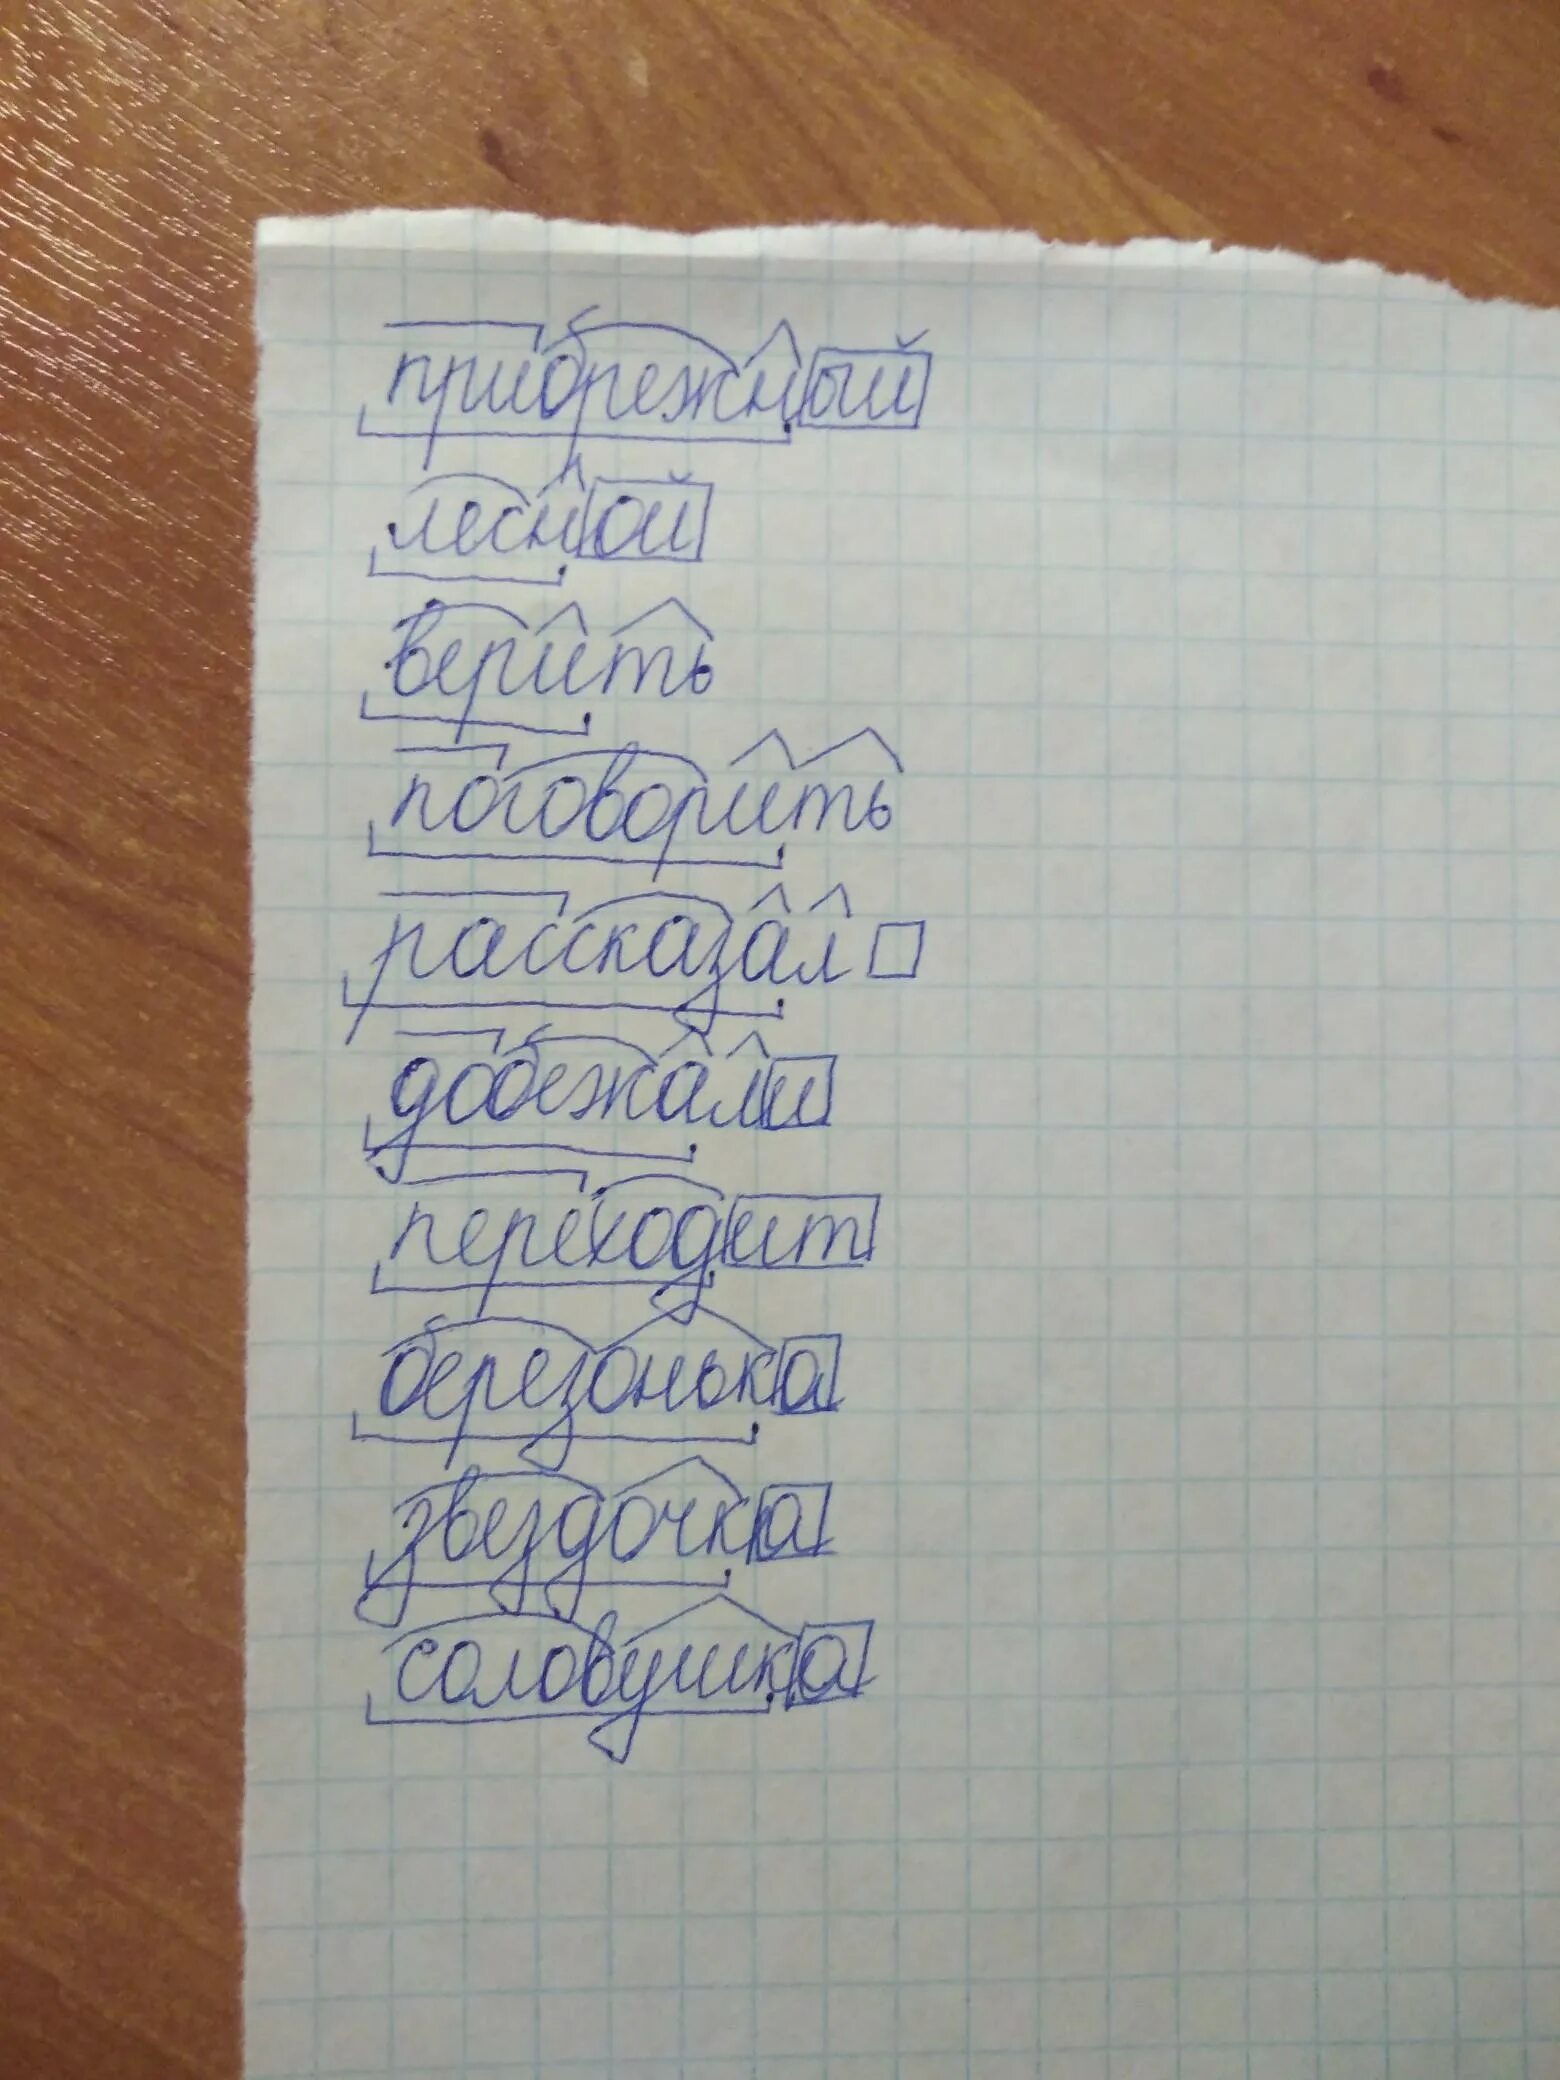 прибрежный
лесной
верить
поговорить
рассказал
добежали
переходит
березонька
звездочка
соловушка